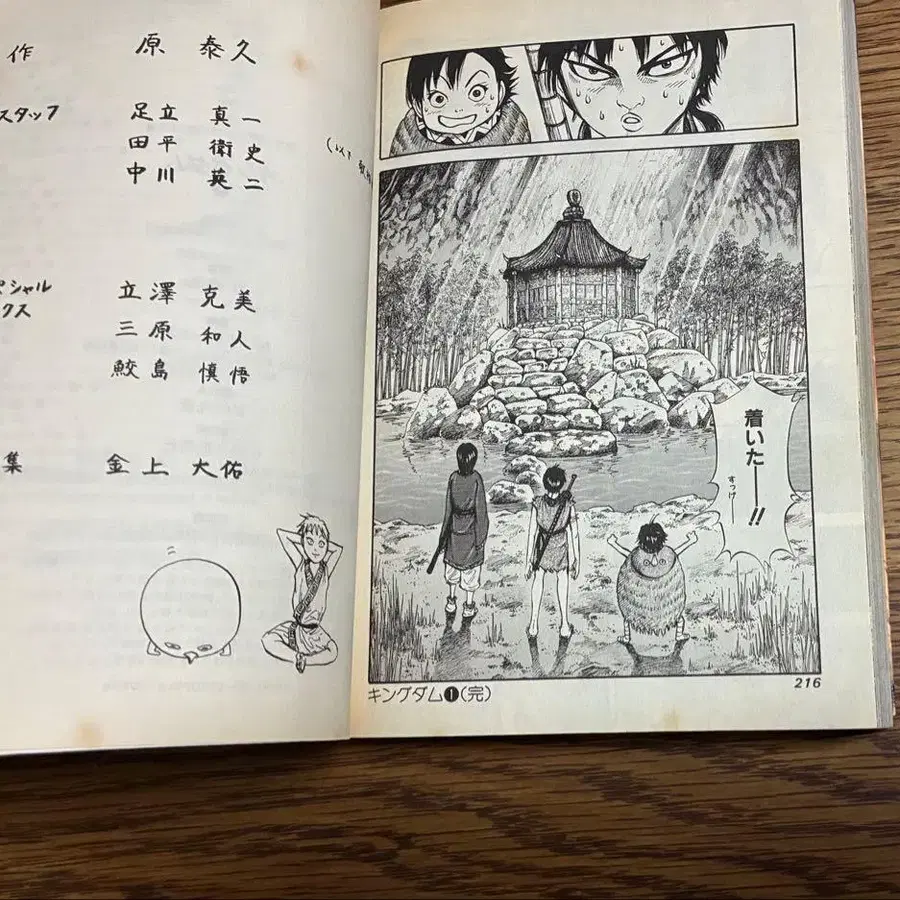 作 原 泰久
スタッフ 足立 真一
田平 衛史
中川 英二
シャル
クス
立澤 克美
三原 和人
鮫島 慎悟
集 金上 大佑
着いた――!!
すっげー
キングダム❶(完)
216